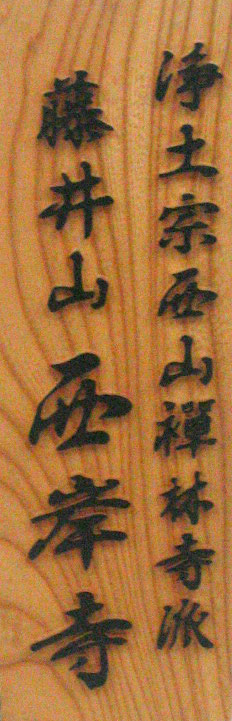 浄土宗西山禅林寺派
藤井山西岸寺